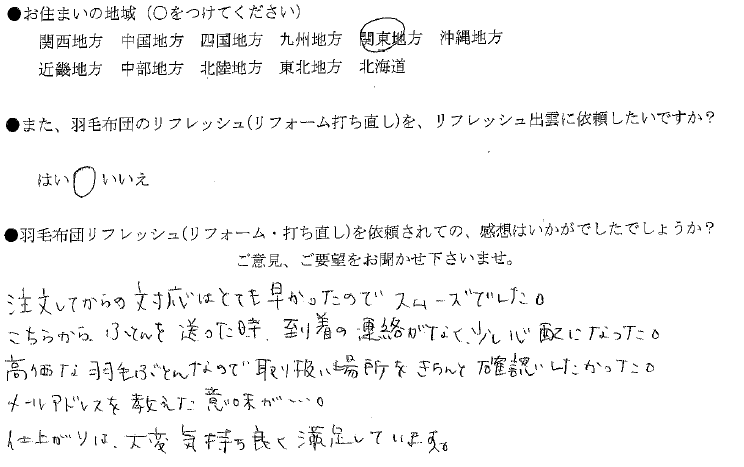 ●お住まいの地域（○をつけてください）
関西地方　中国地方　四国地方　九州地方　関東地方　沖縄地方
近畿地方　中部地方　北陸地方　東北地方　北海道
●また、羽毛布団のリフレッシュ(リフォーム打ち直し)を、リフレッシュ出雲に依頼したいですか？
はい○いいえ
●羽毛布団リフレッシュ(リフォーム・打ち直し)を依頼されての、感想はいかがでしたでしょうか？
ご意見、ご要望をお聞かせ下さいませ。
注文してからの対応はとても早かったのでスムーズでした。
こちらから、ふとんを送った時、到着の連絡がなく、少し心配になった。
高価な羽毛ぶとんなので取り扱い場所をきちんと確認したかった。
メールアドレスを教えた意味が…。
仕上がりは、大変気持ち良く満足しています。